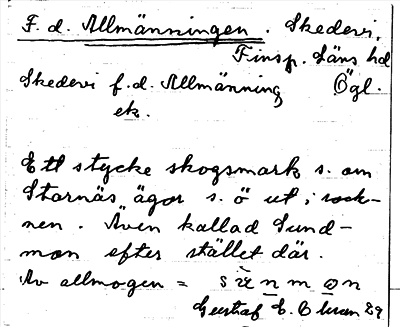 F. d. Allmänningen. Skedevi,
Finsp. Läns hd
Skedevi f.d. Allmänning Ögl.
ek.
Ett stycke skogsmark s. om
Starnäs ägor s. ö ut i sock-
nen. Även kallad Sund-
mon efter stället där.
Av allmogen =
Gustaf E. 29